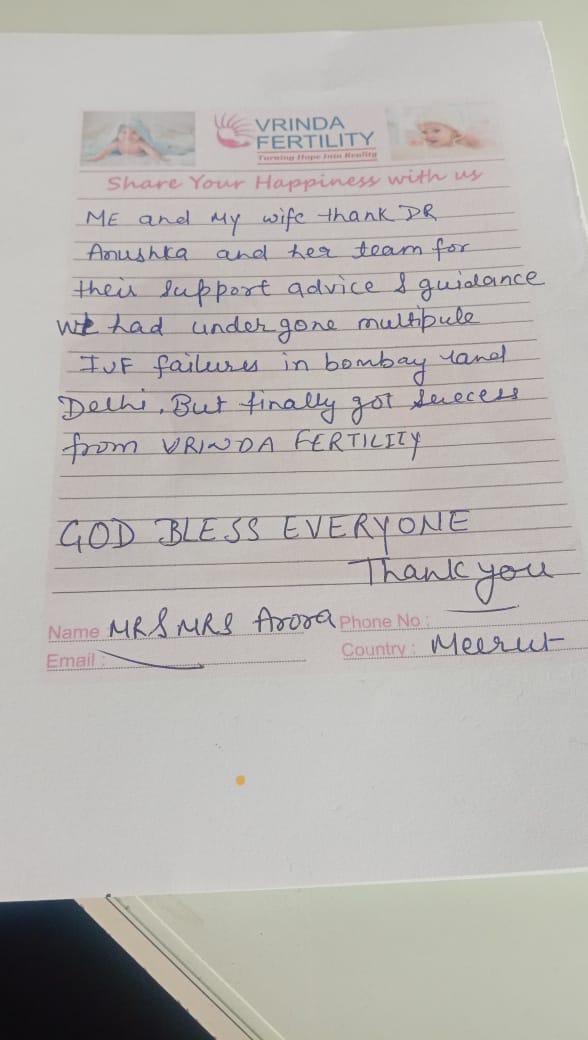 VRINDA
FERTILITY
Turning Hope Into Reality
Share Your Happiness with us
ME and My wife thank DR
Anushka and her team for
their support advice & guidance
We had undergone multipule
IVF failures in bombay and
Delhi. But finally got success
from VRINDA FERTILITY
GOD BLESS EVERYONE
Thank you
Name MR & MRS Arora Phone No :
Email : Country : Meerut